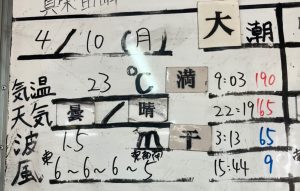 4/10(月) 大潮
気温 23℃ 満 9:03 190
天気 曇/晴 22:19 165
波 1.5m 干 3:13 65
風 東6~6~6~5 15:44 9